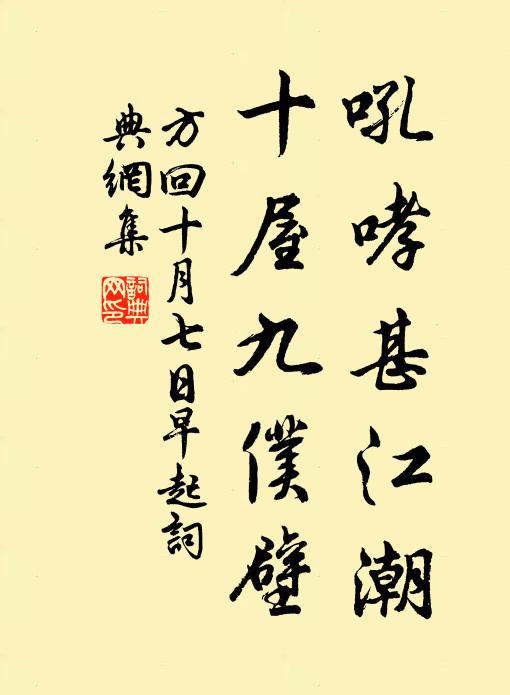 吼哮甚江潮
十屋九僕壁
方回十月七日早起詞
典網集
詞典網印